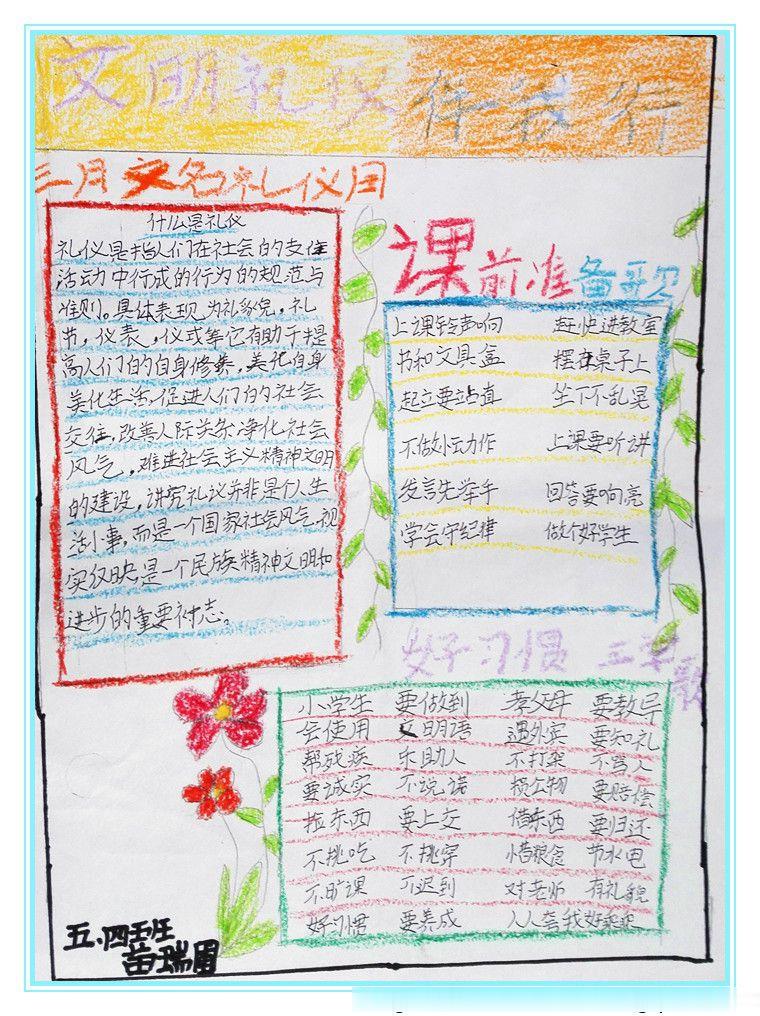 文明礼仪伴我行
三月文名礼仪周
什么是礼仪
礼仪是指人们在社会的支往
活动中行成的行为的规范与
准则。具体表现为礼貌，礼
节，仪表，仪式等它有助于提
高人们的自身修养，美化自身
美化生活，促进人们的社会
交往，改善人际关系净化社会
风气，推进社会主义精神文明
的建设，讲究礼议并非是个人生
活小事，而是一个国家社会风气现
实反映，是一个民族精神文明和
进步的重要标志。
课前准备歌
上课铃声响 赶快进教室
书和文具盒 摆在桌子上
起立要站直 坐下不乱晃
不做小动作 上课要听讲
发言先举手 回答要响亮
学会守纪律 做个好学生
好习惯 三字歌
小学生 要做到 孝父母 要教导
会使用 文明语 遇外宾 要知礼
帮残疾 乐助人 不打架 不骂人
要诚实 不说谎 损公物 要赔偿
捡东西 要上交 借东西 要归还
不挑吃 不挑穿 惜粮食 节水电
不旷课 不迟到 对老师 有礼貌
好习惯 要养成 人人夸我好乖
五.四班
苗瑞